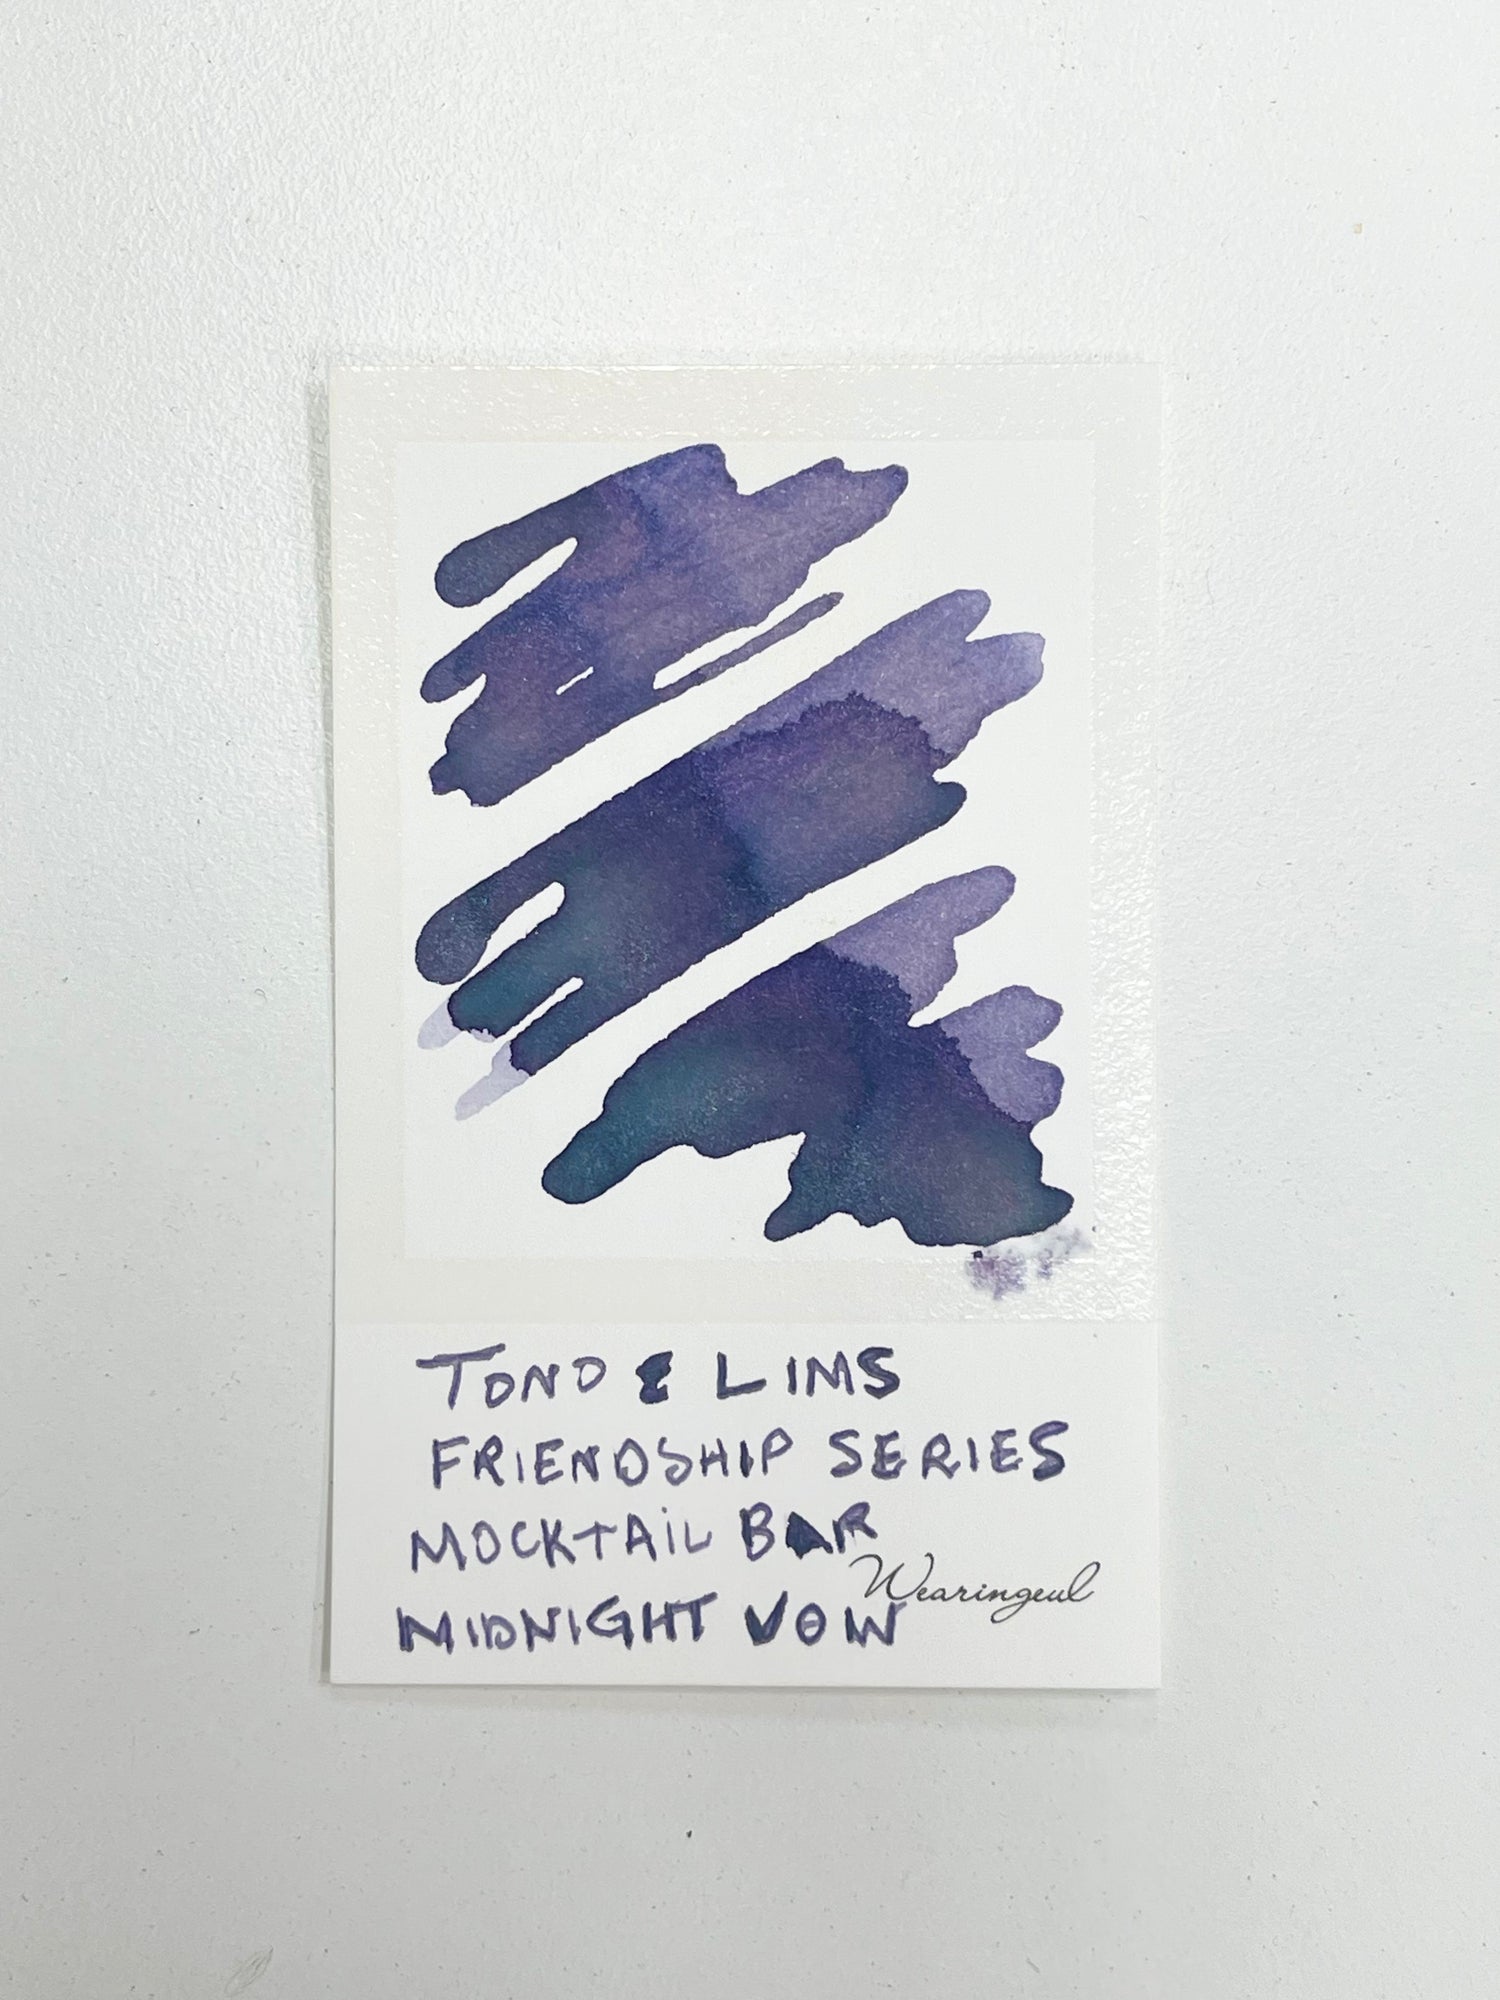 TONO & LIMS
FRIENDSHIP SERIES
MOCKTAIL BAR
Wearingeul
MIDNIGHT VOW